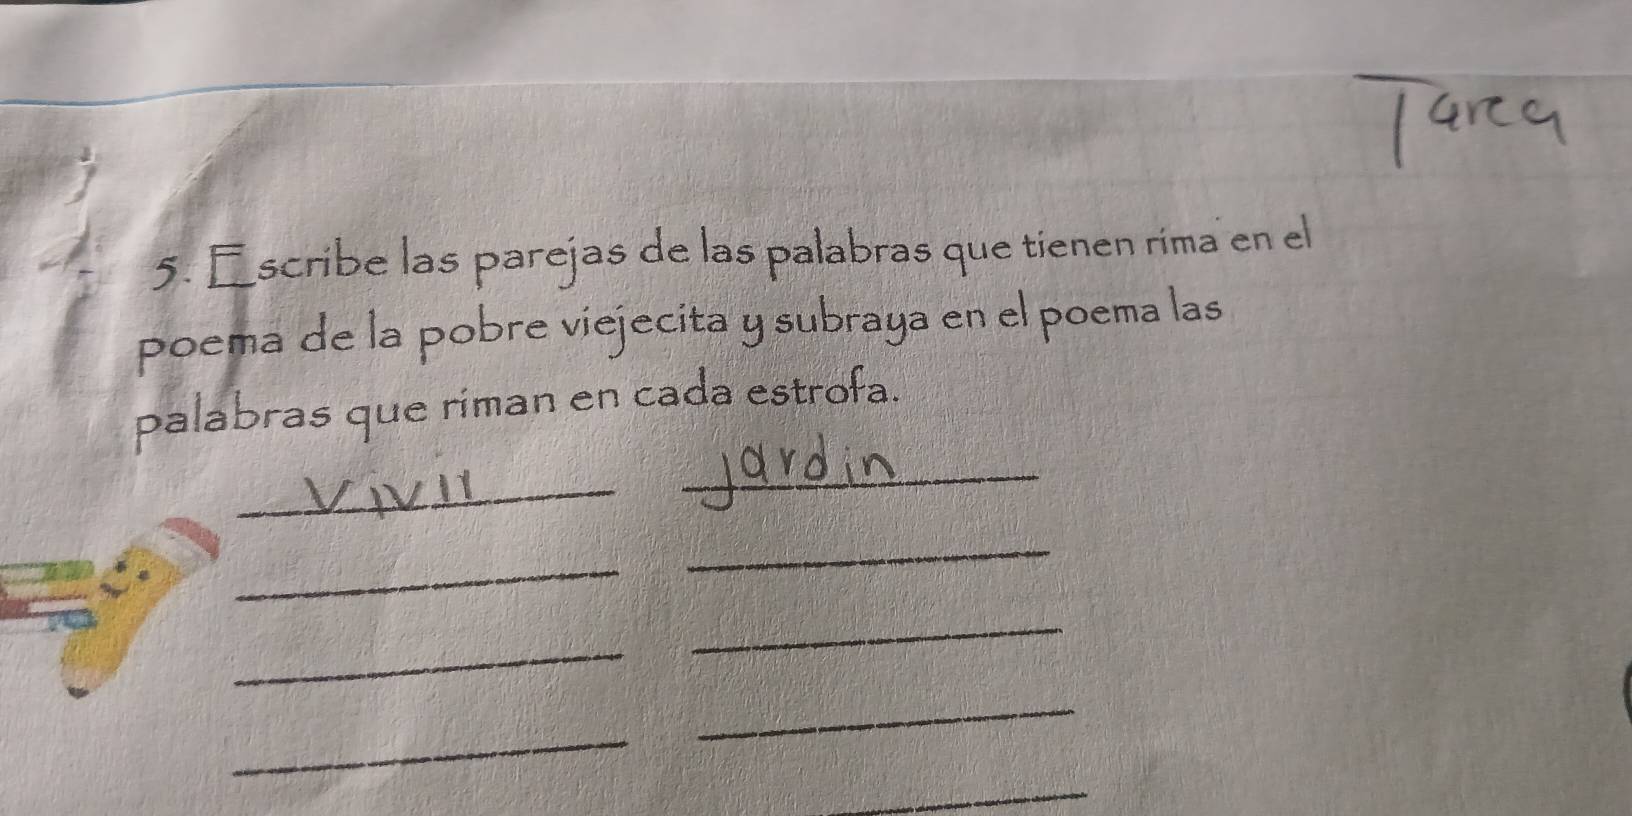 Tarea
5. Escribe las parejas de las palabras que tienen rima en el
poema de la pobre viejecita y subraya en el poema las
palabras que riman en cada estrofa.
vivir jardin